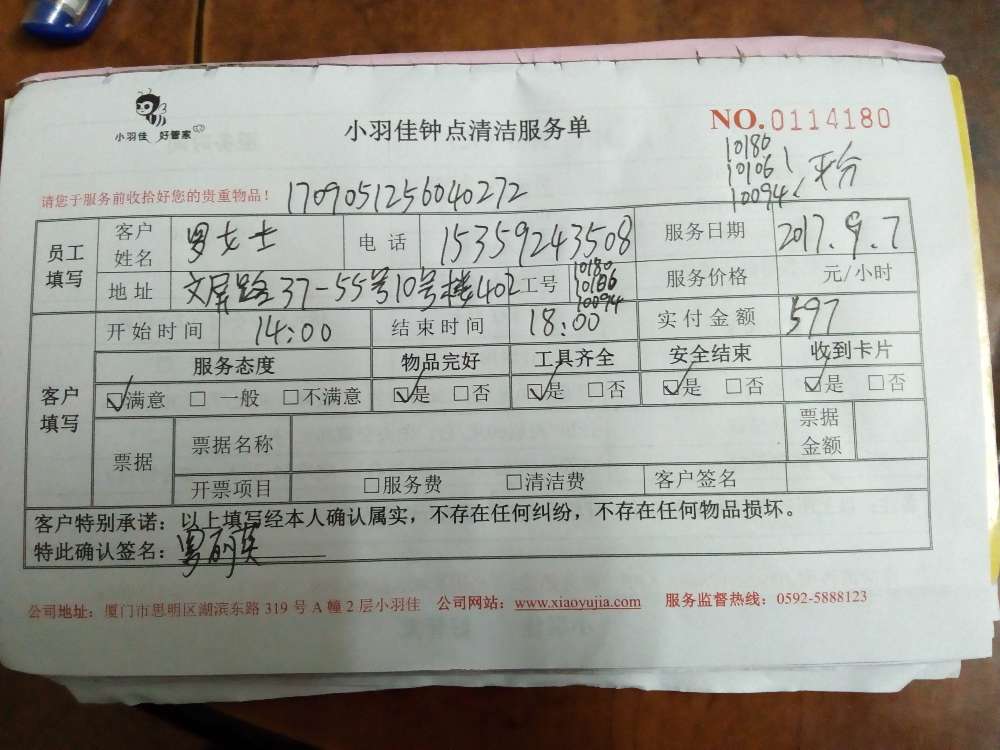 小羽佳 好管家
小羽佳钟点清洁服务单
NO.0114180
10186
10106
10094 平分
请您于服务前收拾好您的贵重物品！ 1709051256040272
员工填写 客户姓名 罗女士 电话 15359243508 服务日期 2017.9.7
地址 文屏路37-55号10号楼402 工号 10180 10186 10094 服务价格 元/小时
客户填写 开始时间 14:00 结束时间 18:00 实付金额 597
服务态度 物品完好 工具齐全 安全结束 收到卡片
☑满意 □一般 □不满意 ☑是 □否 ☑是 □否 ☑是 □否 ☑是 □否
票据 票据名称 票据金额
开票项目 □服务费 □清洁费 客户签名
客户特别承诺：以上填写经本人确认属实，不存在任何纠纷，不存在任何物品损坏。
特此确认签名：罗丽
公司地址：厦门市思明区湖滨东路 319 号 A 幢 2 层小羽佳 公司网站：www.xiaoyujia.com 服务监督热线：0592-5888123